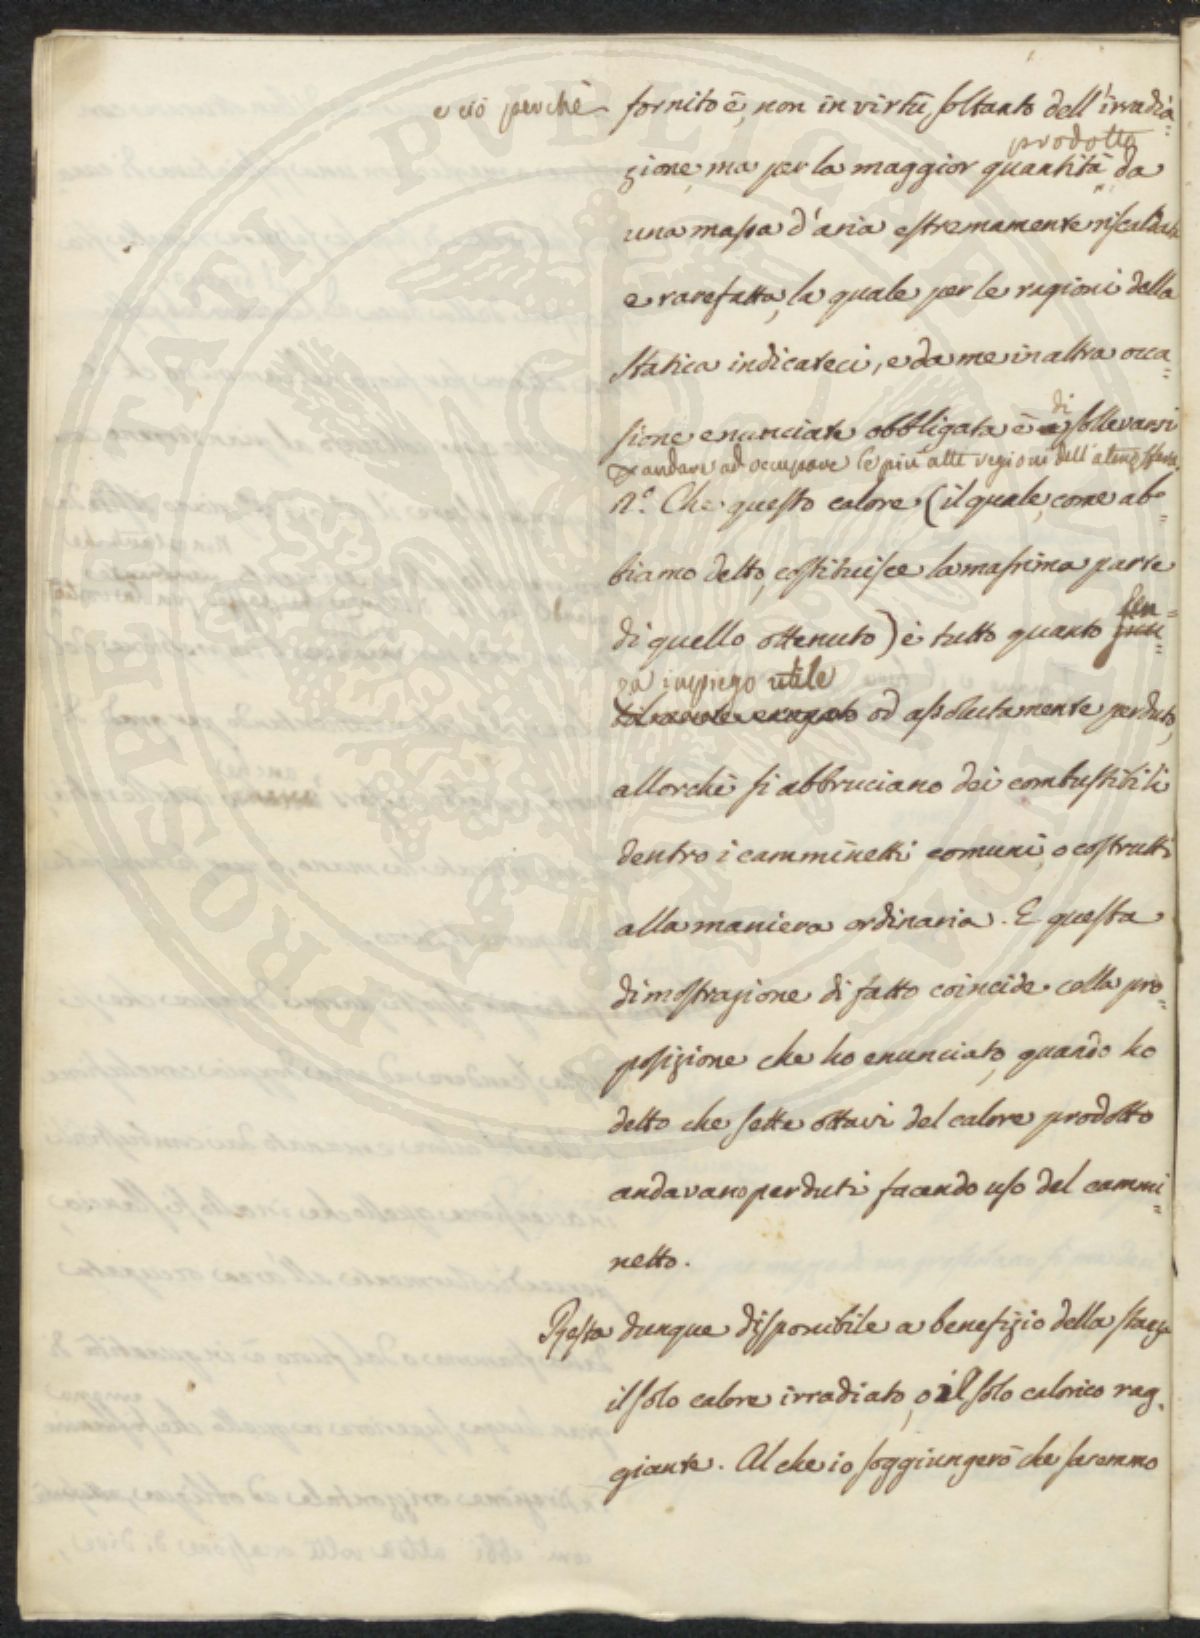 e ciò perchè fornito è, non in virtù soltanto dell'irradia=
prodotta
zione, ma per la maggior quantità da
una massa d'aria estremamente riscaldata
e rarefatta, la quale per le ragioni della
Statica indicateci, e da me in altra occa=
di
sione enunciate obbligata è a sollevarsi
ed andare ad occupare le più alte regioni dell'atmosfera.
Che questo calore (il quale, come ab=
biamo detto, costituisce la massima parte
sen=
di quello ottenuto) è tutto quanto
za impiego utile
od assolutamente perduto,
allorchè si abbruciano dei combustibili
dentro i camminetti comuni, o costrutti
alla maniera ordinaria. E questa
dimostrazione di fatto coincide colla pro=
posizione che ho enunciato, quando ho
detto che sette ottavi del calore prodotto
andavano perduti facendo uso del cammi=
netto.
Resta dunque disponibile a benefizio della stanza
il solo calore irradiato, o il solo calorico rag=
giante. Al che io soggiungerò che saremmo
PROSPERITATI PVBLICAE